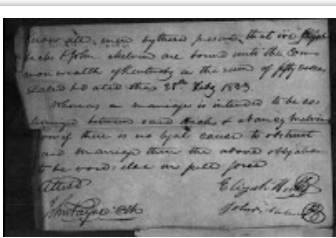 Know all men by these presents, that we Elijah
& John Melvin are bound unto the Com-
monwealth of Kentucky in the sum of fifty pounds
Sealed & dated this 28th July 1803
Whereas a marriage is intended to be so-
lemnized between said & Nancy Melvin
now if there is no legal cause to obstruct
said marriage then the above obligation
to be void; else in full force
Attest
Elijah
John Payne Clk
John Melvin